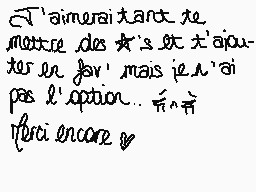 J'aimerai tant te
mettre des ★'s et t'ajou-
ter en fav' mais je n'ai
pas l'option..
Merci encore ♥